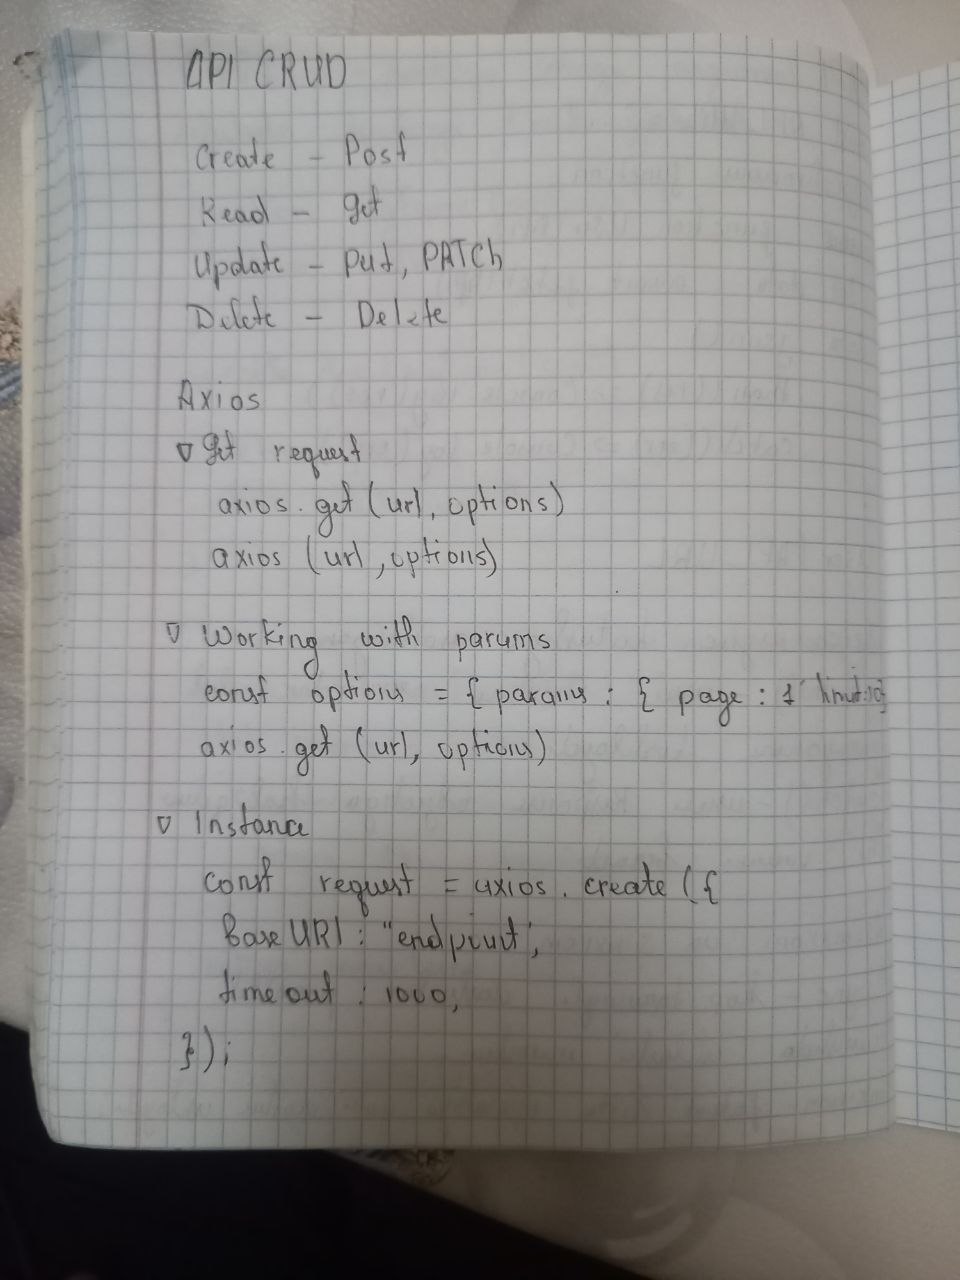 API CRUD
Create - Post
Read - get
Update - put, PATCh
Delete - Delete
Axios
▽ Get request
axios.get (url, options)
axios (url, options)
▽ Working with params
const options = { params : { page : 1 limit:10}
axios.get (url, options)
▽ Instance
const request = axios.create ({
BaseURl : "endpoint",
timeout : 1000,
});